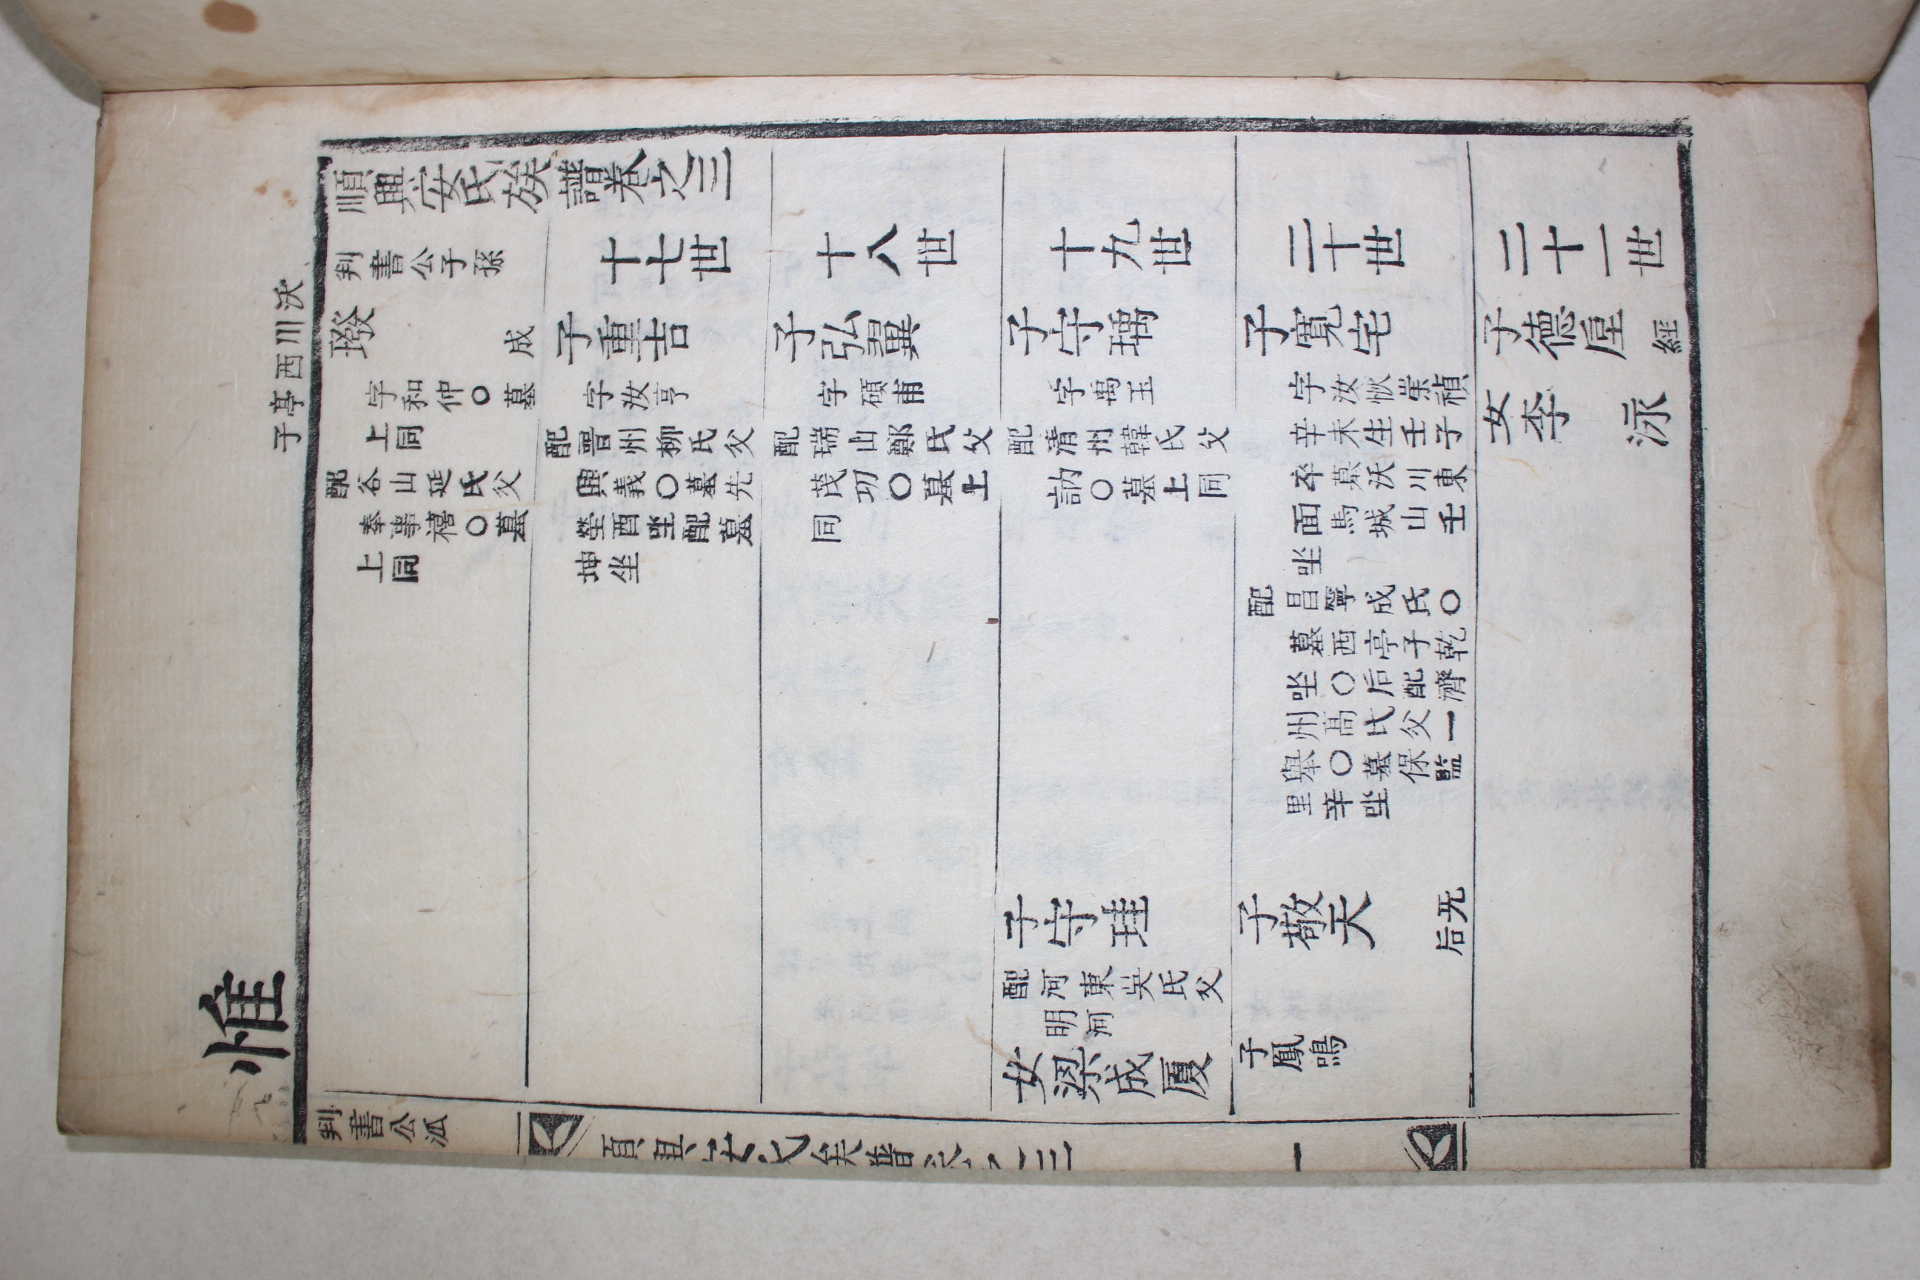 順興安氏族譜卷之三
判書公子孫
沃川西亭子
成
字和仲○墓
上同
配谷山延氏父
奉事禧○墓
上同
十七世
子重吉
字汝亨
配晋州柳氏父
興義○墓先
塋酉坐配墓
坤坐
十八世
子弘翼
字碩甫
配瑞山鄭氏父
茂功○墓上
同
十九世
子守瑀
字禹玉
配清州韓氏父
訥○墓上同
子守珪
配河東吳氏父
明河
女梁成厦
二十世
子寬宅
字汝恢崇禎
辛未生壬子
卒墓沃川東
面馬城山壬
坐
配昌寧成氏○
墓西亭子乾
坐○后配濟
州高氏父一
舉○墓保監
里辛坐
子擎天
无后
子鳳鳴
二十一世
子德垕 經
女李泳
惟
判書公派
順興安氏族譜卷之三 一